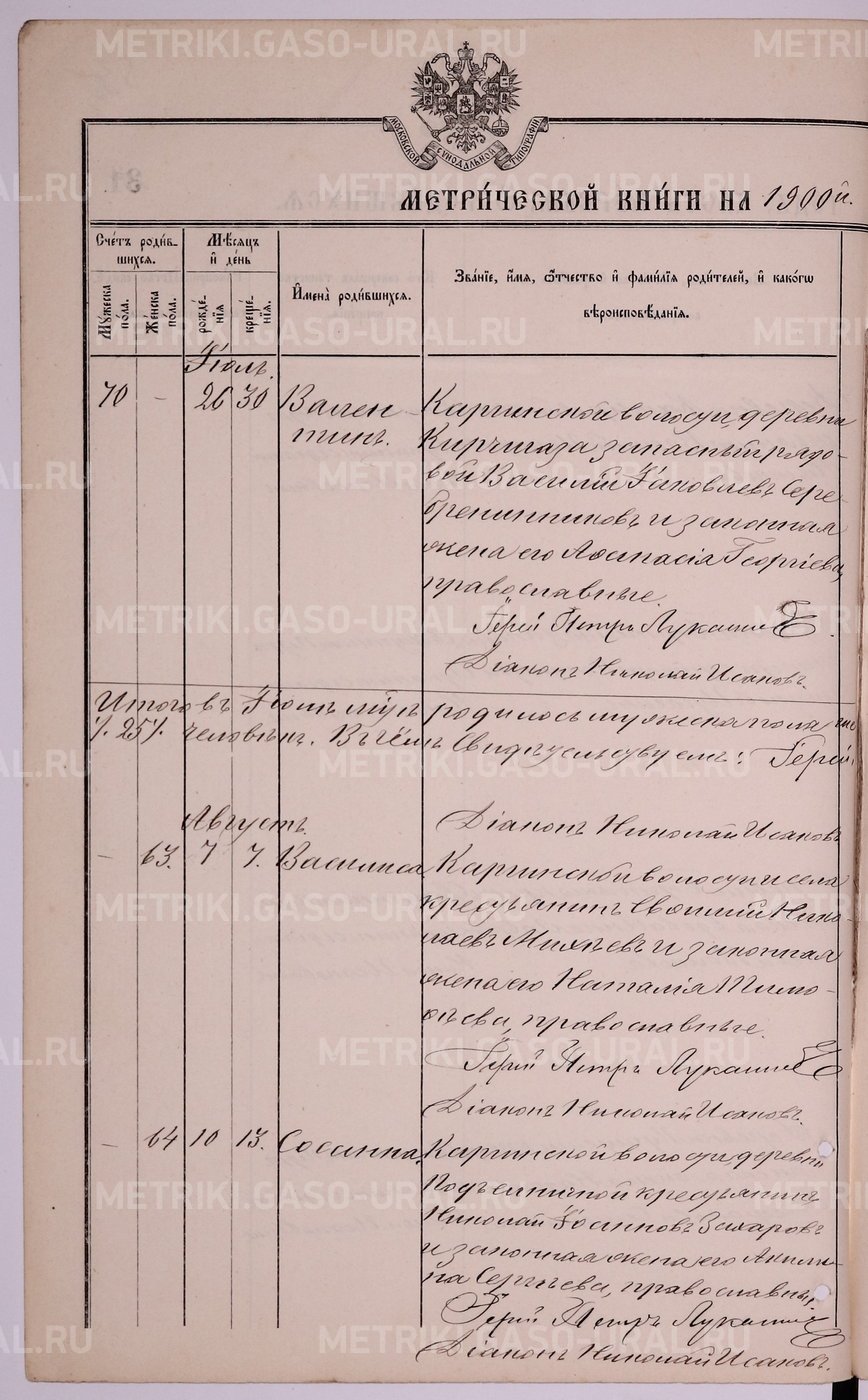 МОСКОВСКОЙ СѴНОДАЛЬНОЙ ТИПОГРАФІИ
МЕТРИ́ЧЕСКОЙ КНИ́ГИ НА 1900й.
Сче́тъ роди́в-
шихся.
Му́жеска
по́ла.
Же́нска
по́ла.
Мѣ́сяцъ
и҆ де́нь
рожде́-
нїя
креще́-
нїя.
И҆мена̀ роди́вшихся.
Зва́нїе, и҆́мя, ѻ҆́тчество и҆ фами́лїя роди́телей, и҆ како́гѡ
вѣроисповѣ́данїя.
Іюль.
70 - 26 30 Вален-
тинъ.
Каргинской волости, деревни
Кирчигаза запасный рядо-
вой Василій Іаковлевъ Сере-
бренниковъ и законная
жена его Аѳанасія Георгіева,
православные.
Іерей Петръ Лукашинъ
Діаконъ Николай Исаковъ.
Итого въ Іюлѣ м҃цѣ родилось мужеска пола
25 человѣкъ. Въ чёмъ свидѣтельствуемъ: Іерей
Діаконъ Николай Исаковъ
Августъ.
- 63. 7 7. Василиса
Каргинской волости и села
крестьянинъ Евѳимій Нико-
лаевъ Михѣевъ и законная
жена его Наталія Тимо-
ѳѣева, православные.
Іерей Петръ Лукашинъ
Діаконъ Николай Исаковъ.
- 64 10 13. Сосанна.
Каргинской волости, деревни
Подъельничной крестьянинъ
Николай Іоанновъ Захаровъ
и законная жена его Акили-
на Сергѣева, православные.
Іерей Петръ Лукашинъ
Діаконъ Николай Исаковъ.
METRIKI.GASO-URAL.RU